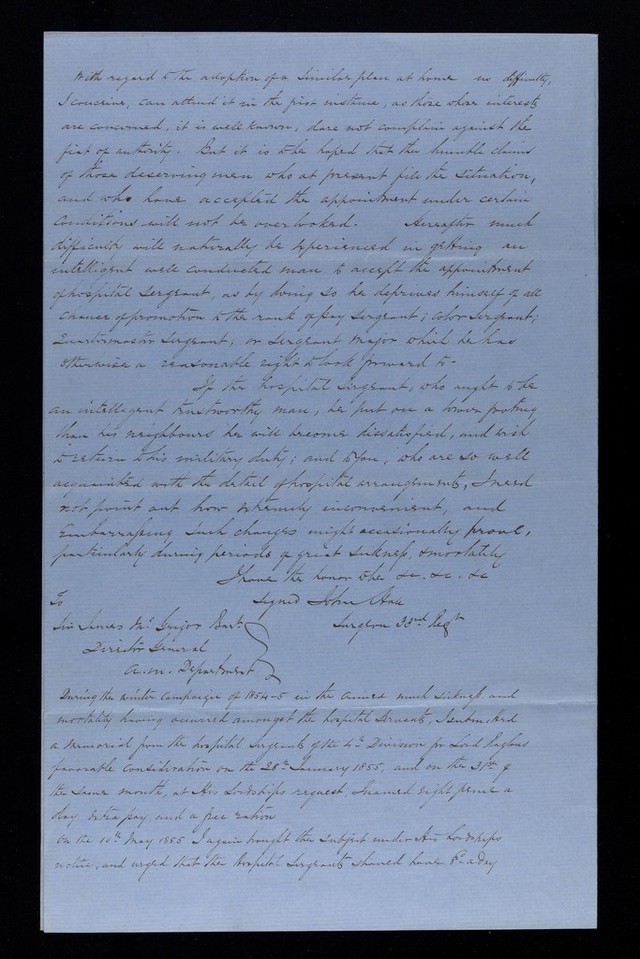 With regard to the adoption of a similar plan at home no difficulty,
I conceive, can attend it in the first instance, as those whose interests
are concerned, it is well known, dare not complain against the
fiat of authority. But it is to be hoped that the humble claims
of those deserving men who at present fill the situation,
and who have accepted the appointment under certain
conditions will not be overlooked. Hereafter much
difficulty will naturally be experienced in getting an
intelligent well conducted man to accept the appointment
of hospital Sergeant, as by doing so he deprives himself of all
chance of promotion to the rank of Pay Sergeant; Color Sergeant;
Quartermaster Sergeant; or Sergeant Major which he has
otherwise a reasonable right to look forward to-
If the hospital Sergeant, who ought to be
an intelligent trustworthy man, be put on a lower footing
than his neighbours he will become dissatisfied, and wish
to return to his military duty; and to you, who are so well
acquainted with the detail of hospital arrangements, I need
not point out how extremely inconvenient, and
embarrassing such changes might occasionally prove,
particularly during periods of great sickness, & mortality
I have the honor to be &c. &c. &c
To signed John Hall
Sir James McGrigor Bart. Surgeon 33rd Regt
Director General
A.M. Department
During the winter campaign of 1854-5 in the Crimea much sickness and
mortality having occurred amongst the hospital Servants, I submitted
a memorial from the hospital Sergeants of the 4th Division for Lord Raglans
favorable consideration on the 28th January 1855, and on the 31st of
the same month, at His Lordships request, I named eight pence a
day extra pay and a free ration
On the 10th May 1855 I again brought the subject under His Lordships
notice, and urged that the Hospital Sergeants should have 8d a day